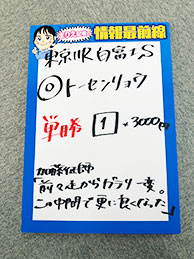 情報最前線
東京11R白富士S
◎トーセンリョウ
単勝 1 ×3000円
加藤征師
「前々走からガラリ一変。
この中間で更に良くなった」